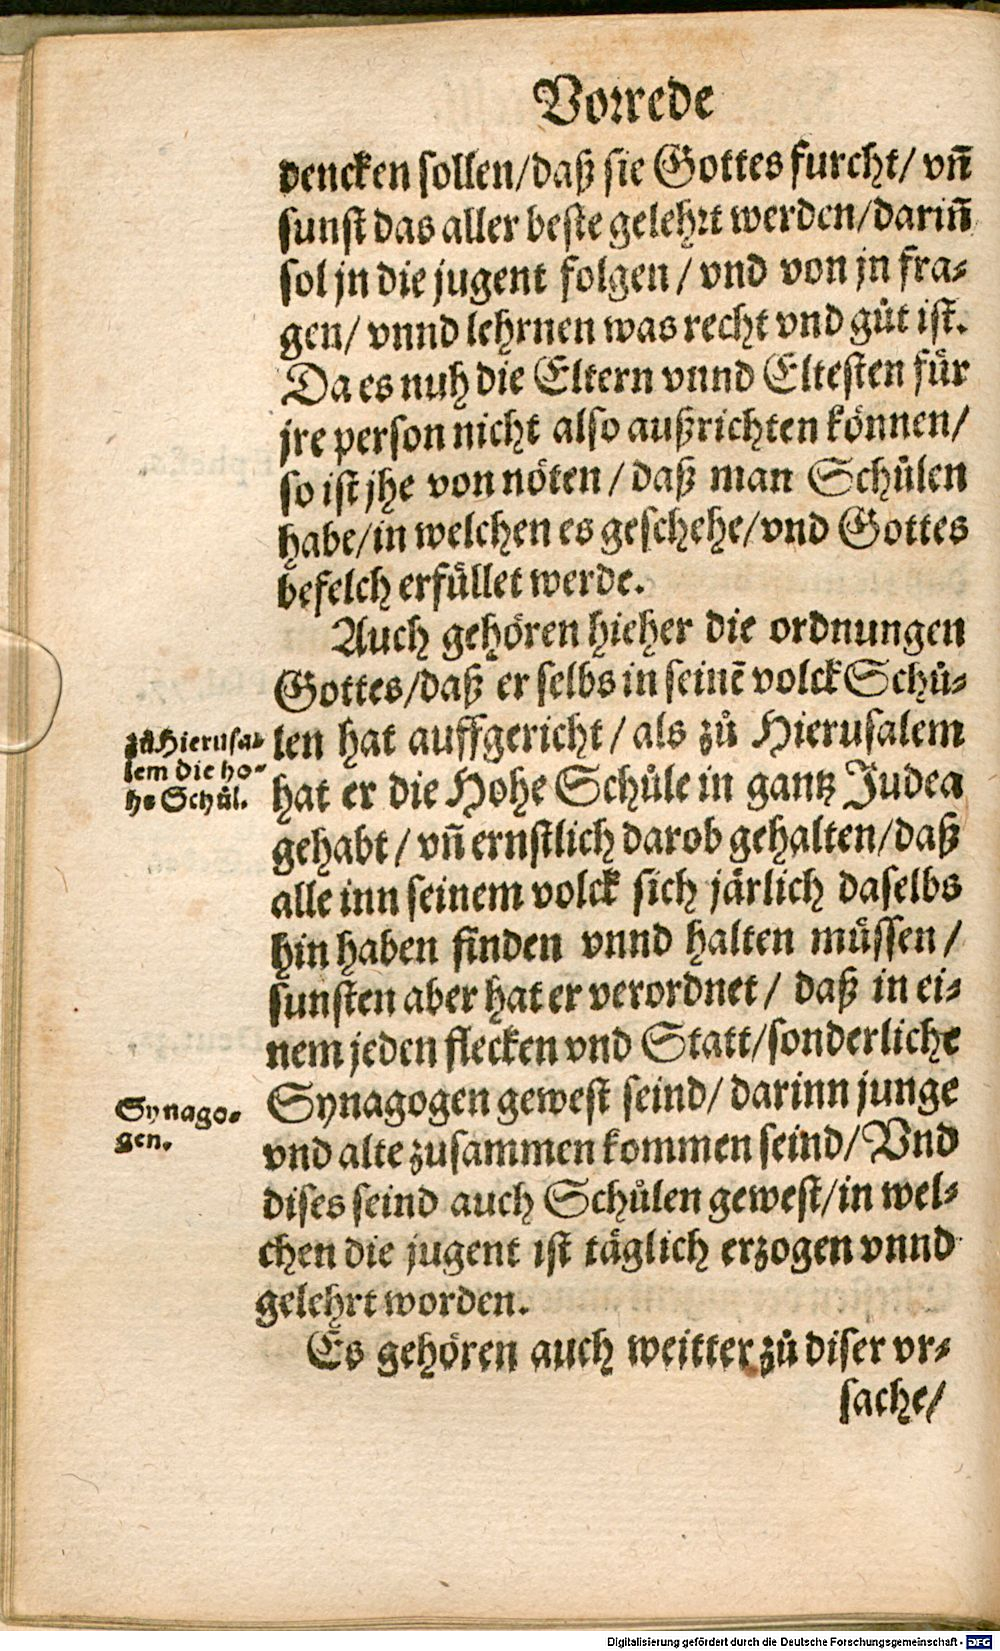 Vorrede
dencken sollen/daß sie Gottes furcht/ vn̄
sunst das aller beste gelehrt werden/darin̄
sol jn die jugent folgen/ vnd von jn fra-
gen/ vnnd lehrnen was recht vnd gůt ist.
Da es nuh die Eltern vnnd Eltesten für
jre person nicht also außrichten können/
so ist jhe von nöten/ daß man Schůlen
habe/in welchen es geschehe/vnd Gottes
befelch erfüllet werde.
Auch gehören hieher die ordnungen
Gottes/daß er selbs in seinē volck Schů-
len hat auffgericht/ als zů Hierusalem
hat er die Hohe Schůle in gantz Judea
gehabt/ vn̄ ernstlich darob gehalten/daß
alle inn seinem volck sich järlich daselbs
hin haben finden vnnd halten müssen/
sunsten aber hat er verordnet/ daß in ei-
nem jeden flecken vnd Statt/sonderliche
Synagogen gewest seind/ darinn junge
vnd alte zusammen kommen seind/ Vnd
dises seind auch Schůlen gewest/in wel-
chen die jugent ist täglich erzogen vnnd
gelehrt worden.
Es gehören auch weitter zů diser vr-
sache/
zů Hierusa-
lem die ho-
he Schůl.
Synago-
gen.
Digitalisierung gefördert durch die Deutsche Forschungsgemeinschaft - DFG